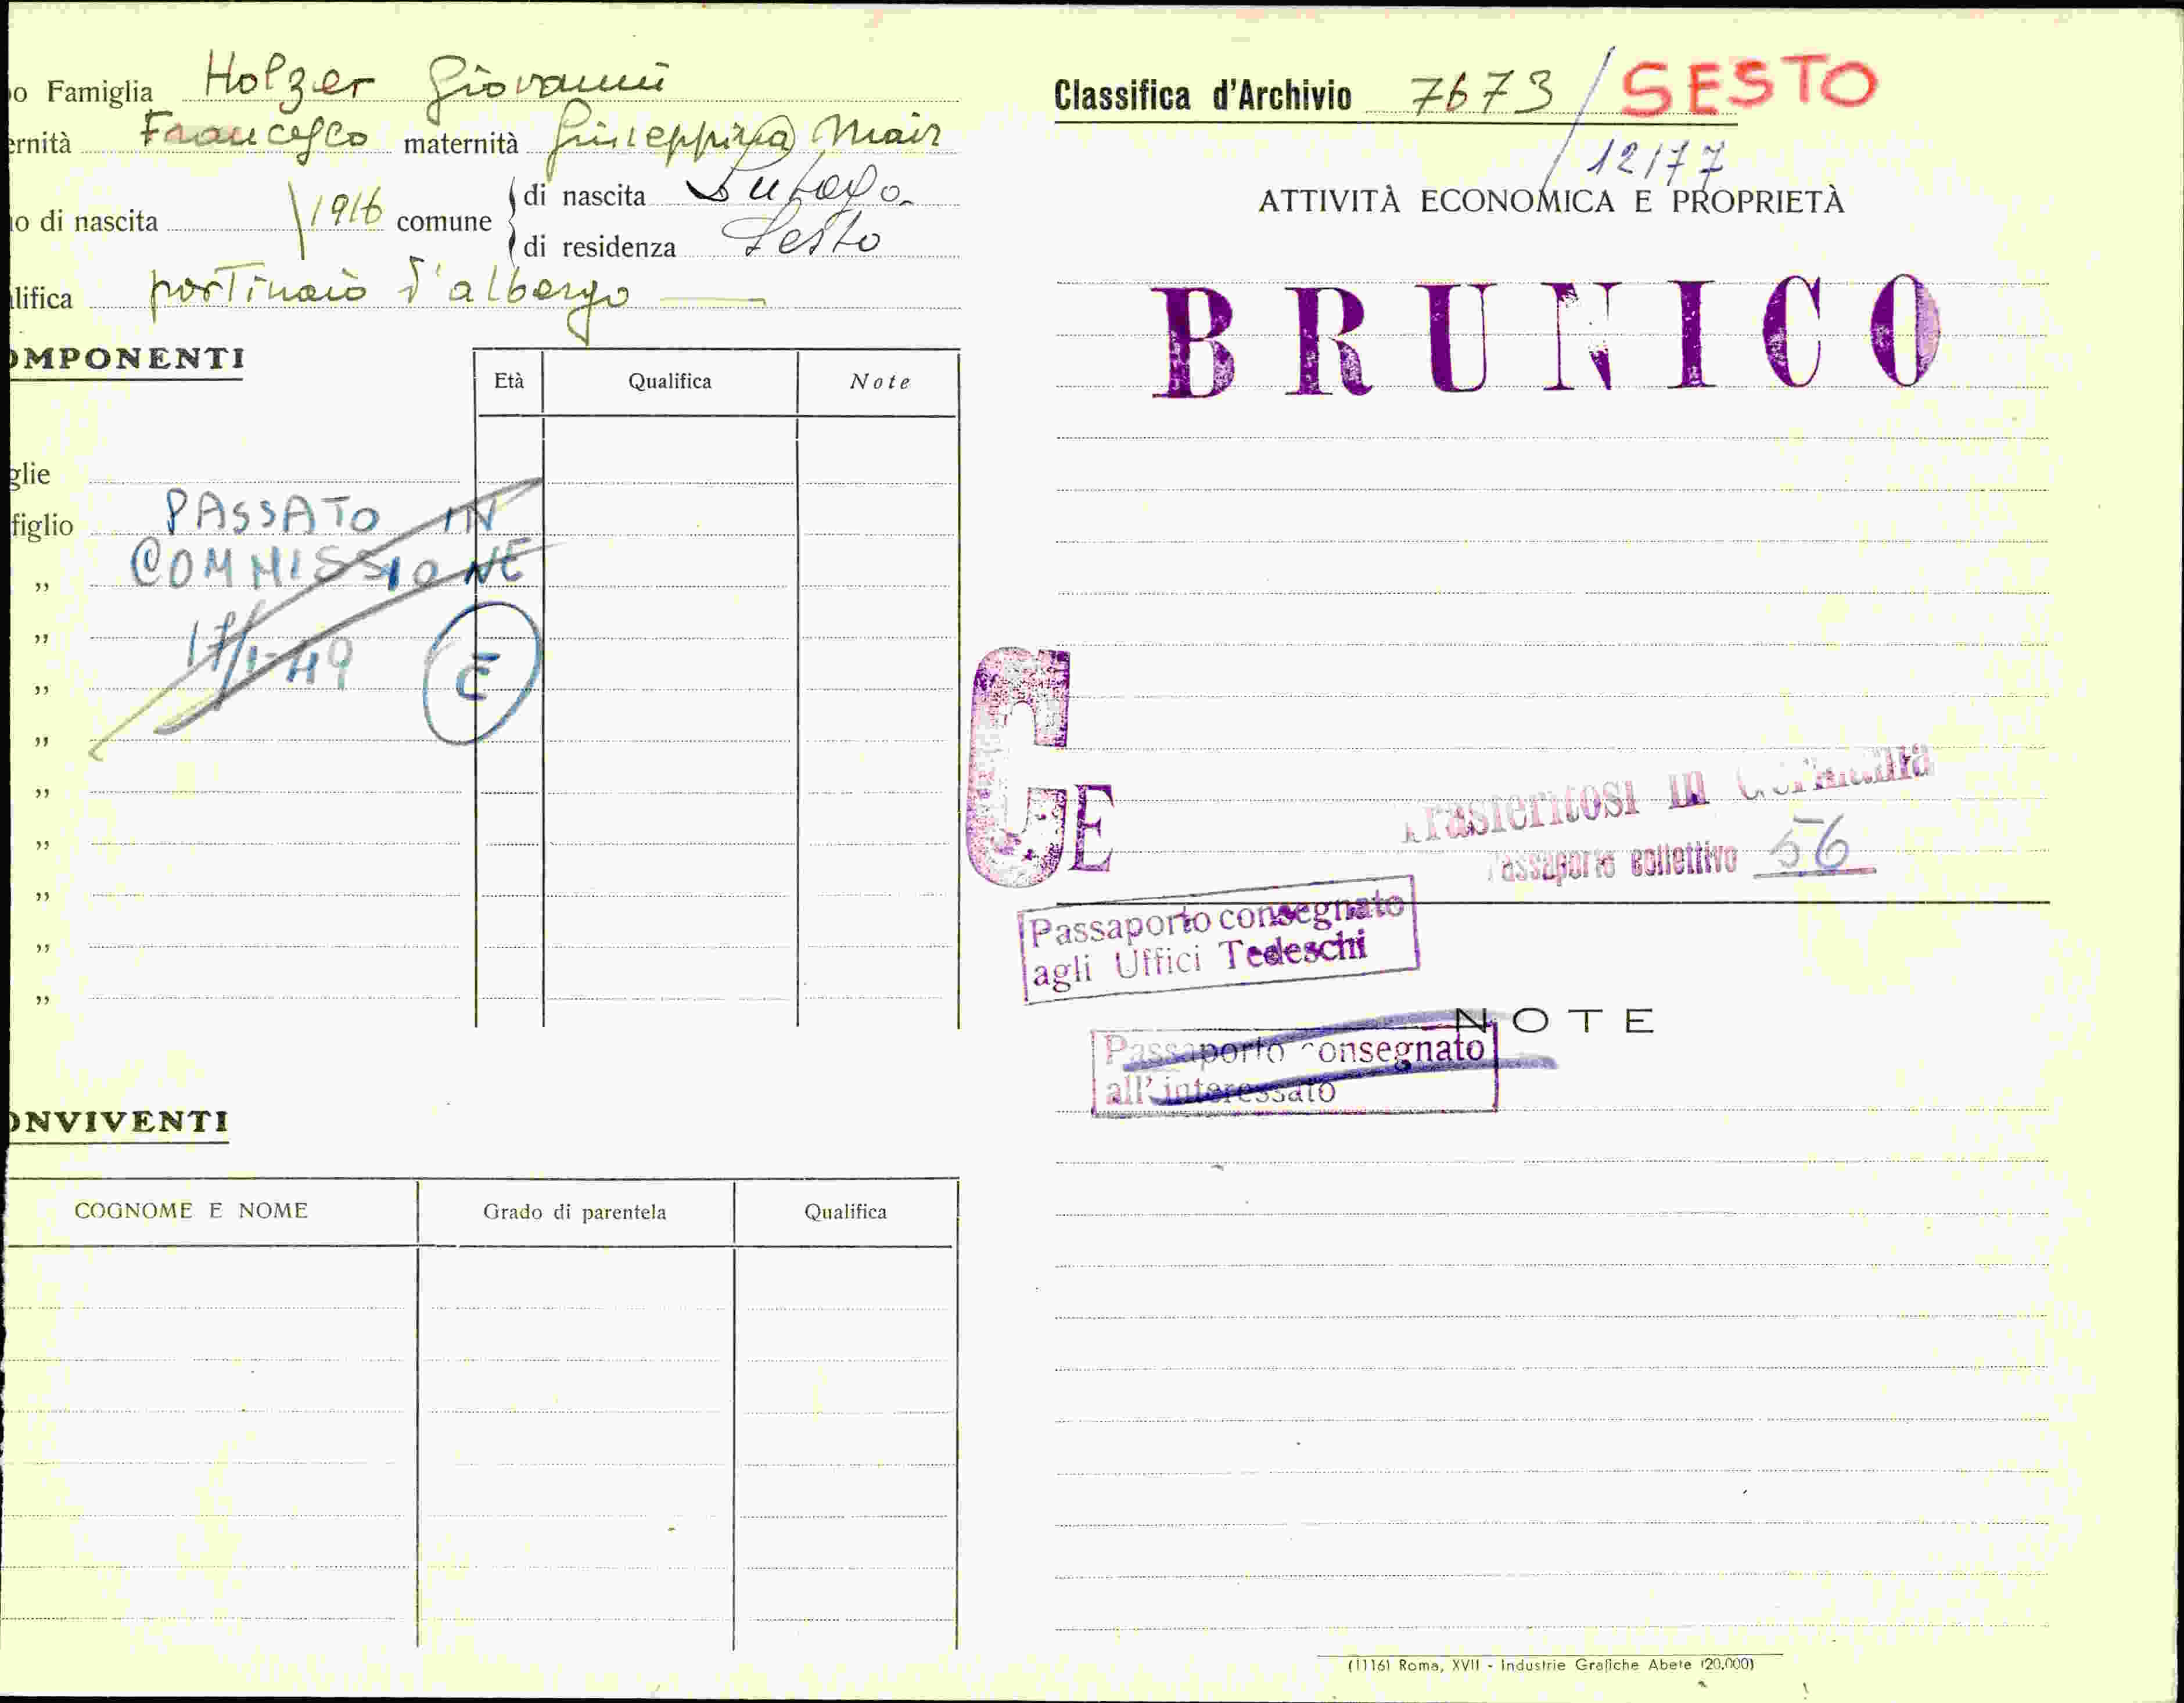 o Famiglia Holzer Giovanni
ernità Francesco maternità Giuseppina Mair
o di nascita 1916 comune
di nascita
di residenza Sesto
lifica portinaio d'albergo
OMPONENTI
Età Qualifica Note
glie
figlio PASSATO IN
" COMMISSIONE
" 17/1-49
" E
"
"
"
"
"
"
ONVIVENTI
COGNOME E NOME Grado di parentela Qualifica
Classifica d'Archivio 7673 / SESTO
12177
ATTIVITÀ ECONOMICA E PROPRIETÀ
BRUNICO
G
E
Trasferitosi in Germania
Passaporto collettivo 56
Passaporto consegnato
agli Uffici Tedeschi
NOTE
Passaporto consegnato
all'interessato
(1116) Roma, XVII - Industrie Grafiche Abete (20.000)